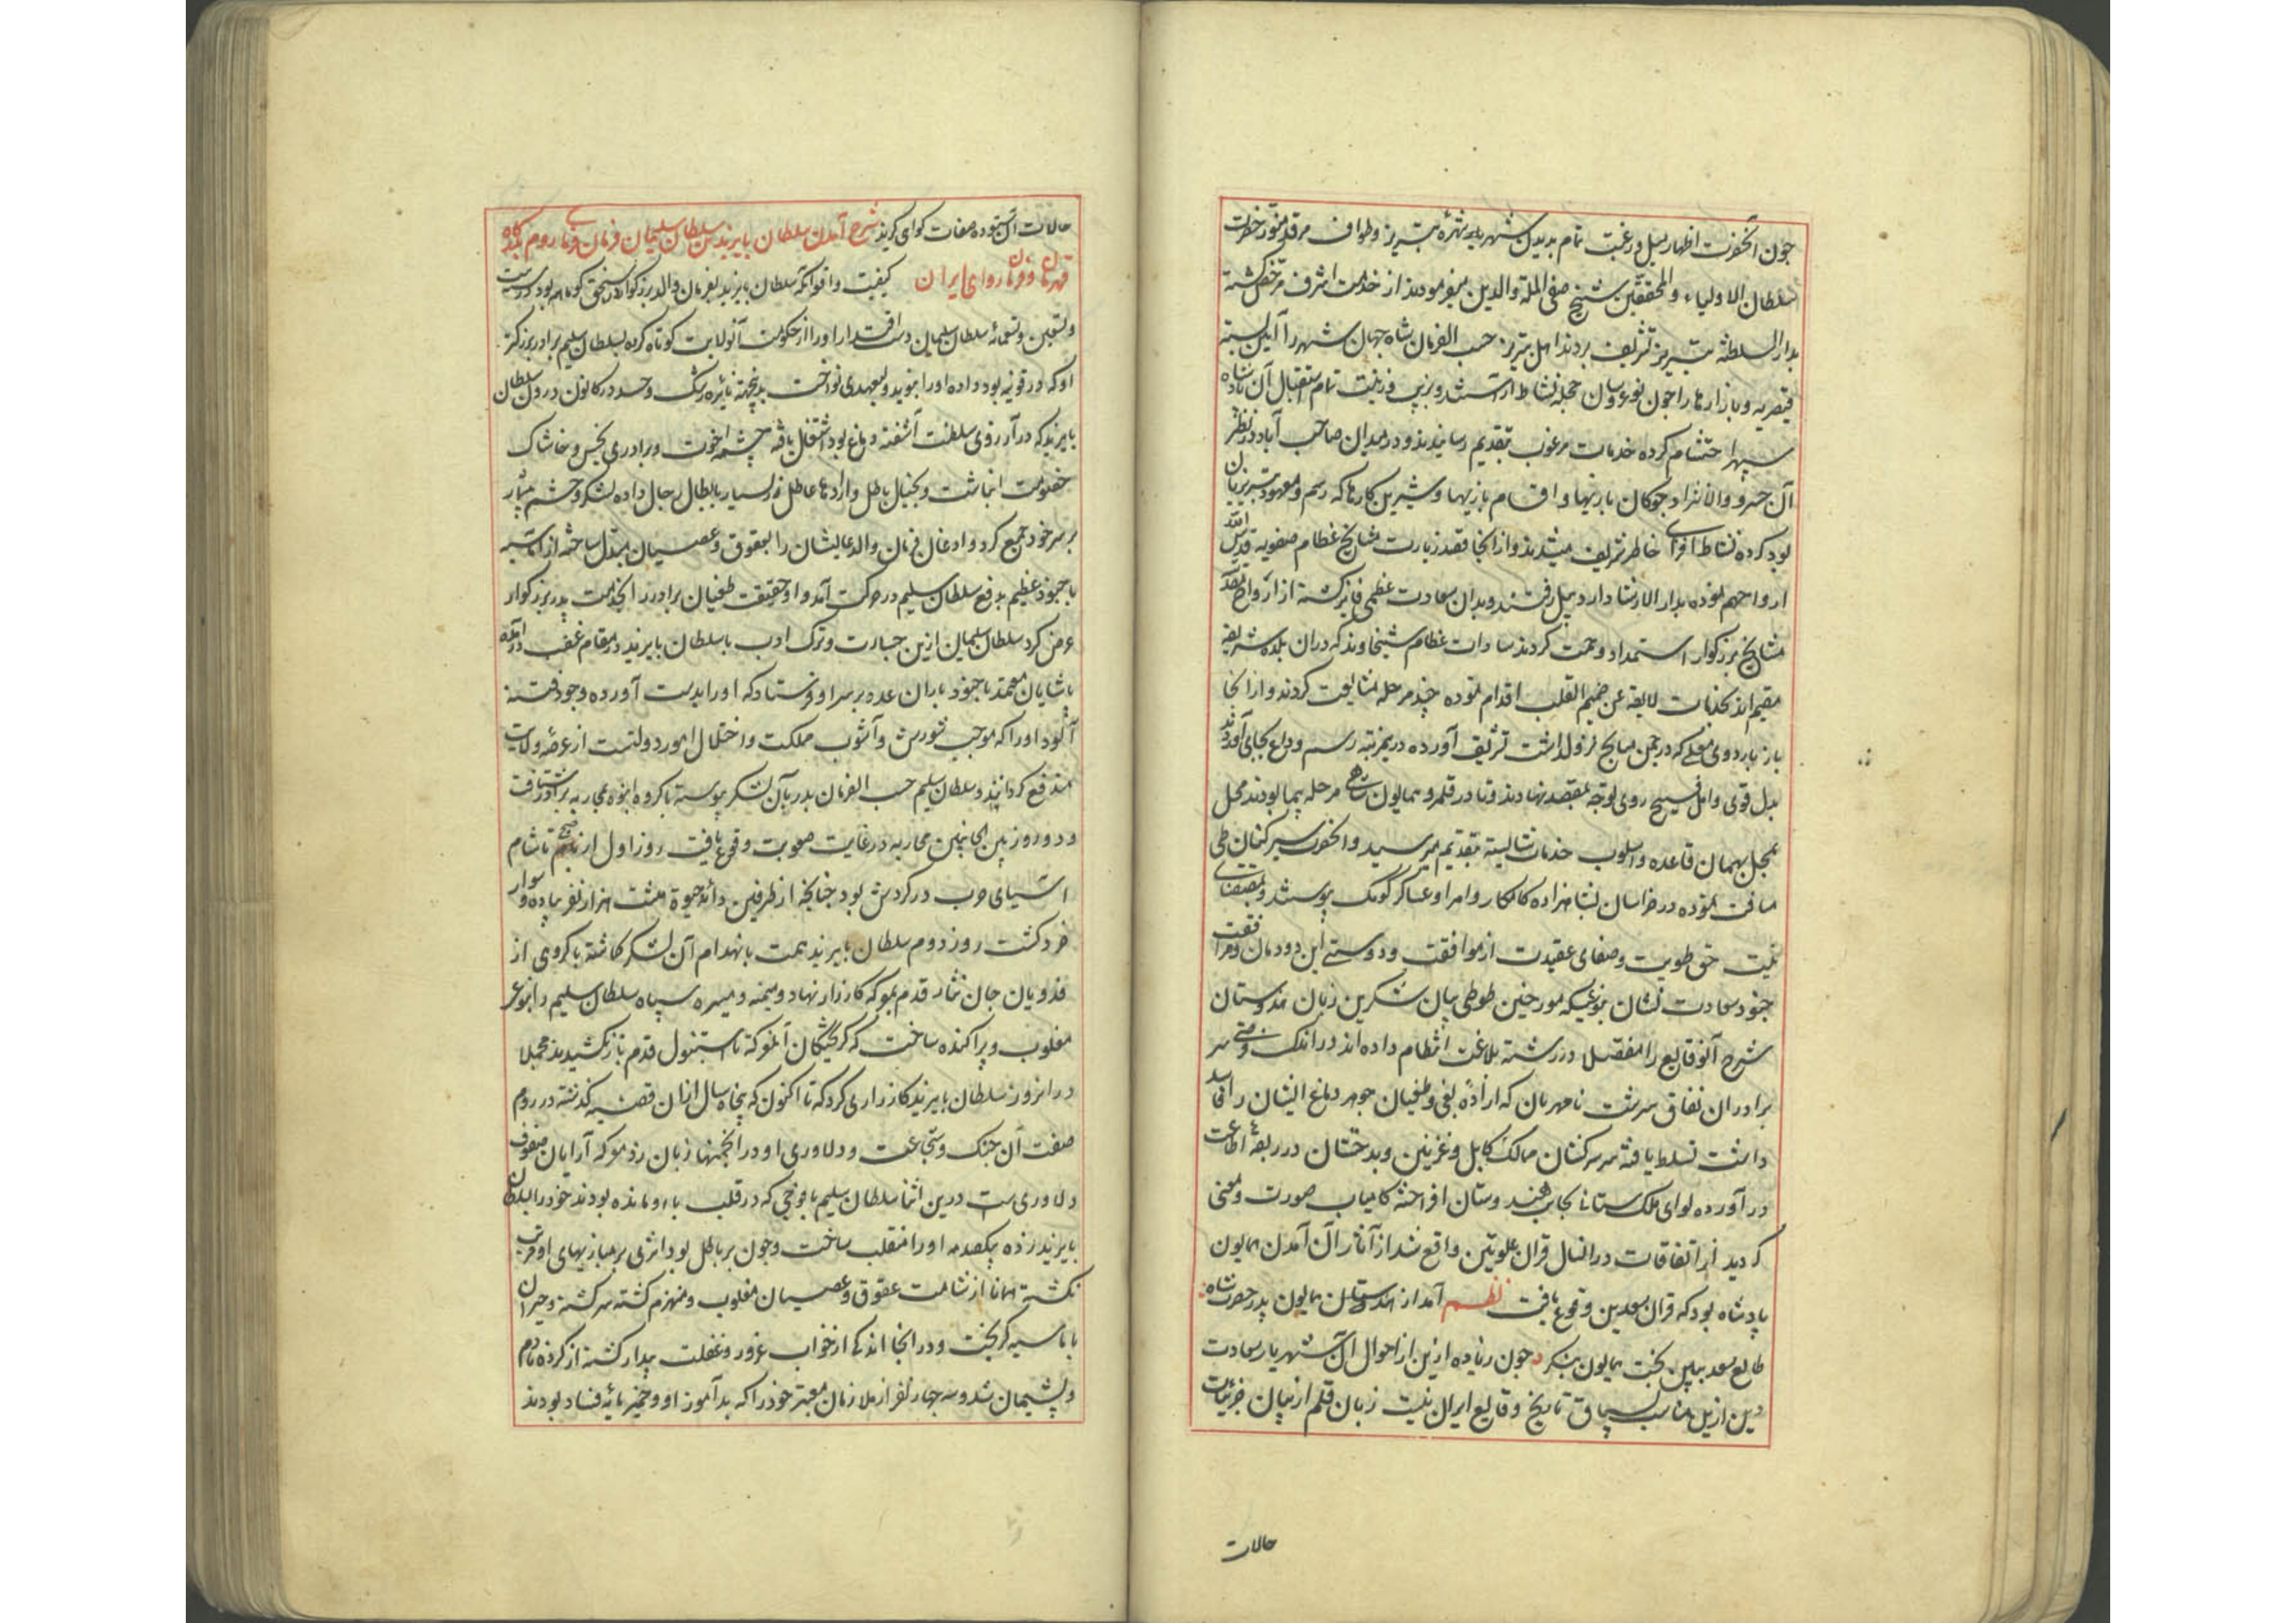 چون آنحضرت اظهار میل و رغبت تمام بدیدن شهر شهره تبریز و طواف مرقد منور حضرت
سلطان الاولیاء و المحققین شیخ صفی الملة والدین میفرمودند از خدمت اشرف مرخص گشته
بدار السلطنه تبریز تشریف بردند اهل تبریز حسب الفرمان شاه جهان شهر را آیین بسته
قیصریه و بازارها را چون نوعروسان حجله نشاط آراستند و بزیب و زینت تمام استقبال آن پادشاه
سپهر احتشام کرده خدمات مرغوب بتقدیم رسانیدند و در میدان صاحب آباد در نظر
آن خسرو والانژاد چوکان بازیها و اقسام بازیها و شیرین کارها که رسم و معهود تبریزیان
بود کرده نشاط افزای خاطر شریف میشدند و از انجا قصد زیارت مشایخ عظام صفویه قدس الله
ارواحهم نموده بدار الارشاد اردبیل رفتند و بدان سعادت عظمی فایز گشته از ارواح مقدسه
مشایخ بزرگوار استمداد همت کردند سادات عظام شیخاوند که دران بلده شریفه
مقیم اند بخدمات لایقه عن صمیم القلب اقدام نموده چند مرحله مشایعت کردند و از انجا
باز باردوی معلی که در چمن میانج نزول داشت تشریف آورده درینمرتبه رسم وداع بجای آوردند
بدل قوی و امل فسیح روی توجه بمقصد نهادند و تا در قلمرو همایون شاهی مرحله پیما بودند محل
بمحل بهمان قاعده و اسلوب خدمات شایسته بتقدیم میرسید و آنحضرت سیرکنان طی
مسافت نموده در خراسان بشاهزاده کامکار و امرا و عساکر کومک پیوستند و بمقتضای
نیت حق طویت و صفای عقیدت از موافقت و دوستی این دودمان و مرافقت
جنود سعادت نشان بنوعیکه مورخین طوطی بیان شکرین زبان هندوستان
شرح آنوقایع را مفصل در رشته بلاغت انتظام داده اند در اندک وقتی بر
برادران نفاق سرشت نامهربان که اراده بغی و طغیان جوهر دماغ ایشان را فاسد
داشت تسلط یافته سر سرکشان ممالک کابل و غزنین و بدخشان در ربقه اطاعت
در آورده لوای ملک ستانی بجانب هندوستان افراخته کامیاب صورت و معنی
کردید از اتفاقات در انسال قران علویین واقع شد از آثار آن آمدن همایون
پادشاه بود که قران سعدین وقوع یافت نظم آمد از هندوستان همایون پدر حضرت شاه
طالع سعد ببین بخت همایون بنکر چون زیاده ازین از احوال آن شهریار سعادت
قرین ازیل مناسب سیاق تاریخ وقایع ایران نیست زبان قلم از بیان جزئیات
حالات
حالات آن ستوده صفات کوای کریز شرح آمدن سلطان بایزید بن سلطان سلیمان فرمان فرمای روم بدرگاه
قهرمان و فرمانروای ایران کیفیت واقعه آنکه سلطان بایزید بفرمان والد بزرگوار در سنجق کوتاهیه بود در سنه
و تسعین و تسعمائه سلطان سلیمان دست اقتدار او را از حکومت آنولایت کوتاه کرده بسلطان سلیم برادر بزرگتر
او که در قونیه بود داده او را بنوید ولیعهدی نواخت بدینجهة نائره رشک و حسد در کانون درون سلطان
بایزید که در آرزوی سلطنت آشفته دماغ بود اشتعال یافته چشمه اخوت و برادری بخس و خاشاک
خصومت انباشت و بخیال باطل و ارادهای عاطل زر بسیار بابطال رجال داده لشکر و حشم بیشمار
بر سر خود جمع کرد و اذعان فرمان والد عالیشان را بعقوق و عصیان مبدل ساخته از اماسیه
با جنود عظیم بدفع سلطان سلیم در حرکت آمد و او حقیقت طغیان برادر را بخدمت پدر بزرگوار
عرض کرد سلطان سلیمان ازین جسارت و ترک ادب با سلطان بایزید در مقام غضب در آمده
پاشایان معتمد با جنود باران عده بر سر او فرستاد که او را بدست آورده وجود فتنه
آلود او را که موجب شورش و آشوب مملکت و اختلال امور دولتست از عرصه ولایت
مندفع گردانیند و سلطان سلیم حسب الفرمان پدر بآن لشکر پیوسته با گروه انبوه بمحاربه برادر شتافت
و دو روز بین الجانبین محاربه در غایت صعوبت وقوع یافت روز اول از صبح تا شام
آسیای حرب در گردش بود چنانچه از طرفین دانه حیوة هشت هزار نفر پیاده و سوار
خرد گشت روز دوم سلطان بایزید همت بانهدام آن لشکر کاشته با گروهی از
فدویان جان نثار قدم بمعرکه کارزار نهاد و میمنه و میسره سپاه سلطان سلیم را بنوعی
مغلوب و پراکنده ساخت که گریختگان آنمعرکه تا استنبول قدم باز نکشیدند مجملا
در انروز سلطان بایزید کارزاری کرد که تا اکنون که پنجاه سال ازان قضیه گذشته در روم
صفت آن جنک و شجاعت و دلاوری او در انجمنها زبان زد معرکه آرایان صفوف
دلاوری ست درین اثنا سلطان سلیم با فوجی که در قلب با او مانده بودند خود را بسلطان
بایزید زده بیکصدمه او را منقلب ساخت و چون بر باطل بود اثری بر جانبازیهای او مرتب
نگشته همانا از شامت عقوق و عصیان مغلوب و منهزم گشته سرگشته و حیران
باماسیه گریخت و در انجا اندکی از خواب غرور و غفلت بیدار گشته از کرده نادم
و پشیمان شد و سه چهار نفر از ملازمان معتبر خود را که بدآموز او و خمیرمایه فساد بودند